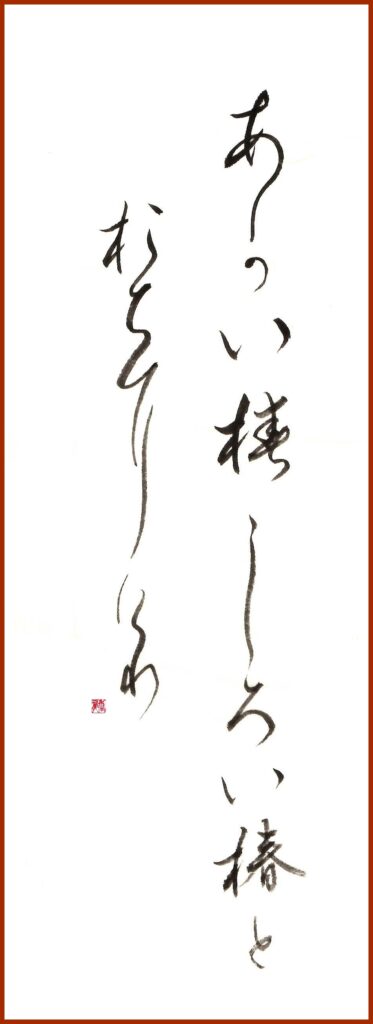 あかい椿しろい椿と
おちにけり